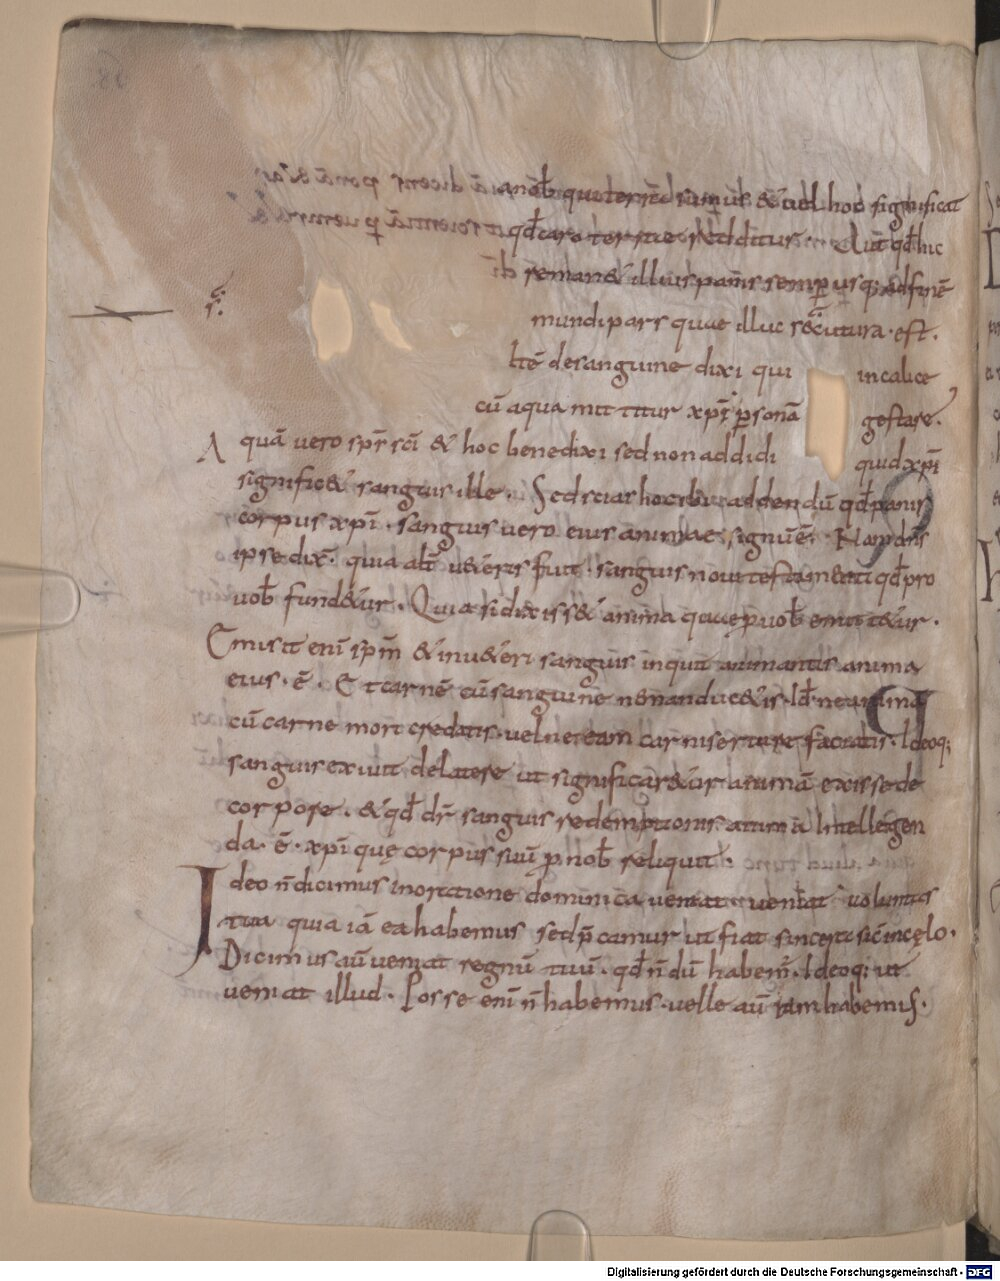 a nob quoteriēs sumus & uel hoc significat
qđ caro terrae redditur. Aut qđ hic
ib remaner& illius panis semp usq; ad finē
mundi pars quae illuc secutura est.
Itē de sanguine dixi qui in calice
cū aqua mittitur xp̄i p̄sonā gestare.
Aquā uero sp̄s sc̄i & hoc benedixi sed non addidi quid xp̄i
signific& sanguis ille. Sed sciat hoc ibi addendū qđ panis
corpus xp̄i. sanguis uero eius animae signū ē. Nam dn̄s
ipse dix̄. quia alt̄ u&eris fuit. sanguis noui testamenti qđ pro
uob fund&ur. Quia si dixiss& anima quae p uob emitt&ur.
Emisit enī sp̄m & in u&eri sanguis inquit animantis anima
eius. ē. Et carnē cū sanguine n̄ manduc&is. Id ne anima
cū carne mori credatis. uel ne eam carnis ertare faciatis. Ideoq;
sanguis exiuit de latere ut significar&ur animā exisse de
corpore. & qđ dr̄ sanguis redemptionis anima Intellegen
da. ē. xp̄i quę corpus suū p nob reliquit.
Ideo n̄ dicimus in oratione dominica ueniat uoluntas
tua quia iā ea habemus sed p̄camur ut fiat sin certi sic̄ in cęlo.
Dicimus aū ueniat regnū tuū. qđ n̄dū habem̄. Ideoq; ut
ueniat illud. Posse enī n̄ habemus. uelle aū iam habemus.
Digitalisierung gefördert durch die Deutsche Forschungsgemeinschaft - DFG